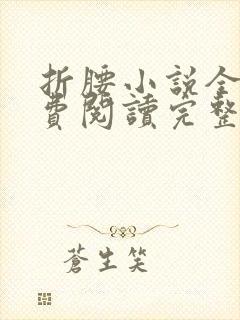 折腰小說全
費閱讀完整
蒼生笑